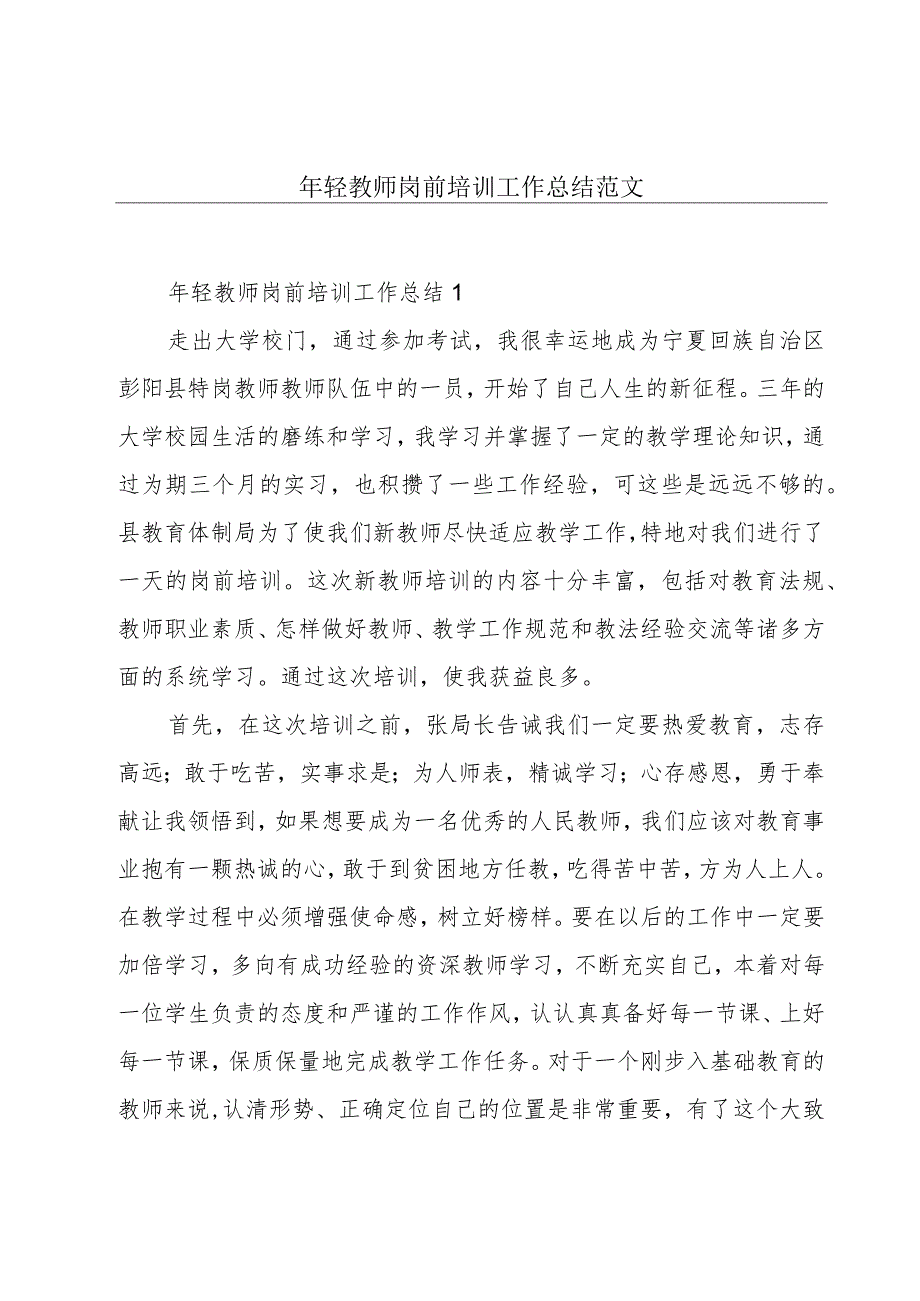 年轻教师岗前培训工作总结范文
年轻教师岗前培训工作总结1
走出大学校门，通过参加考试，我很幸运地成为宁夏回族自治区
彭阳县特岗教师教师队伍中的一员，开始了自己人生的新征程。三年的
大学校园生活的磨练和学习，我学习并掌握了一定的教学理论知识，通
过为期三个月的实习，也积攒了一些工作经验，可这些是远远不够的。
县教育体制局为了使我们新教师尽快适应教学工作，特地对我们进行了
一天的岗前培训。这次新教师培训的内容十分丰富，包括对教育法规、
教师职业素质、怎样做好教师、教学工作规范和教法经验交流等诸多方
面的系统学习。通过这次培训，使我获益良多。
首先，在这次培训之前，张局长告诫我们一定要热爱教育，志存
高远；敢于吃苦，实事求是；为人师表，精诚学习；心存感恩，勇于奉
献让我领悟到，如果想要成为一名优秀的人民教师，我们应该对教育事
业抱有一颗热诚的心，敢于到贫困地方任教，吃得苦中苦，方为人上人。
在教学过程中必须增强使命感，树立好榜样。要在以后的工作中一定要
加倍学习，多向有成功经验的资深教师学习，不断充实自己，本着对每
一位学生负责的态度和严谨的工作作风，认认真真备好每一节课、上好
每一节课，保质保量地完成教学工作任务。对于一个刚步入基础教育的
教师来说,认清形势、正确定位自己的位置是非常重要，有了这个大致